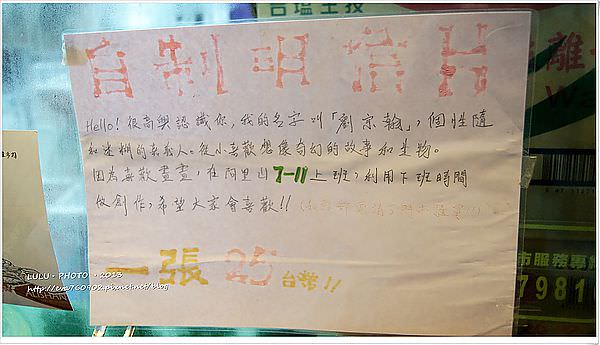 台塩生技
自制明信片
Hello! 很高興認識你, 我的名字叫「劉宗翰」, 個性隨
和迷糊的嘉義人。從小喜歡想像奇幻的故事和生物。
因為喜歡畫畫, 在阿里山7-11上班, 利用下班時間
做創作, 希望大家會喜歡!!
一張 25 台幣!!
離
Wa
市服務專
7981
LULU‧PHOTO‧2013
http://eva760902.pixnet.net/blog